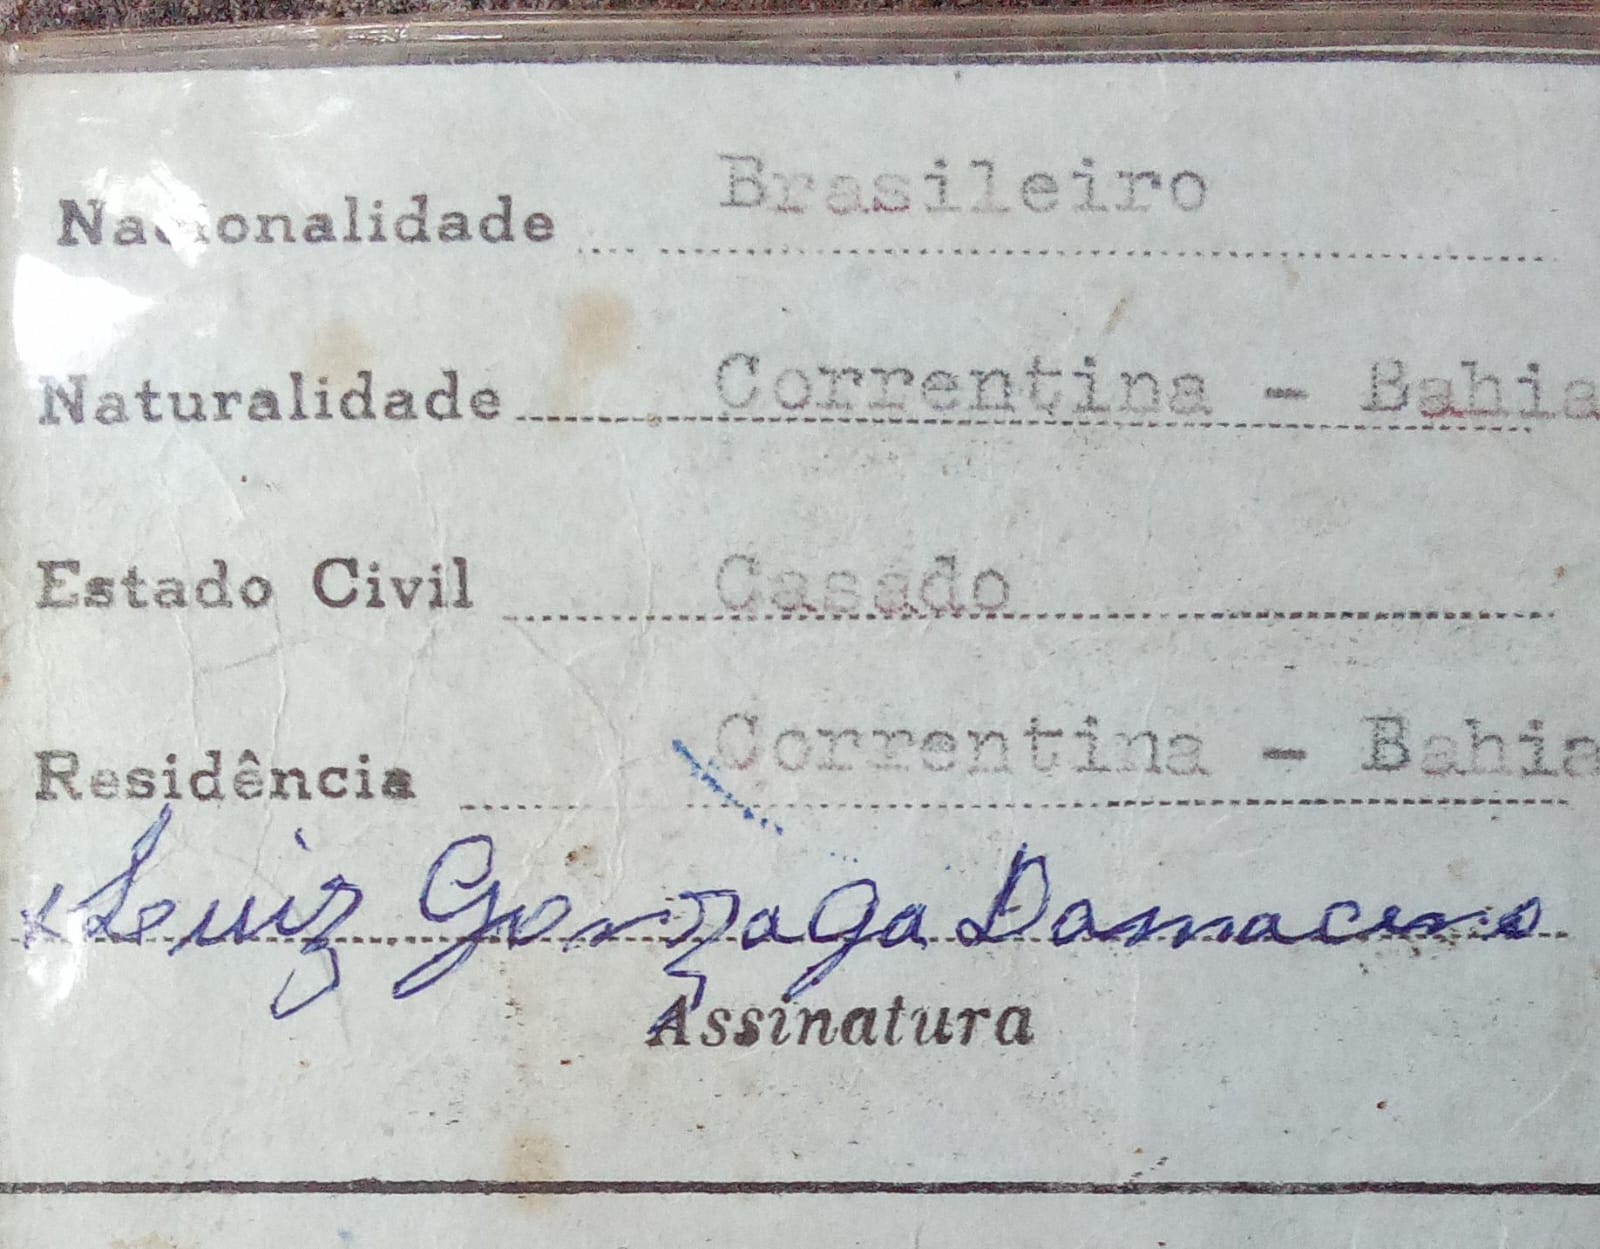 Nacionalidade Brasileiro
Naturalidade Correntina - Bahia
Estado Civil Casado
Residência Correntina - Bahia
x Luiz Gonzaga Damaceno
Assinatura